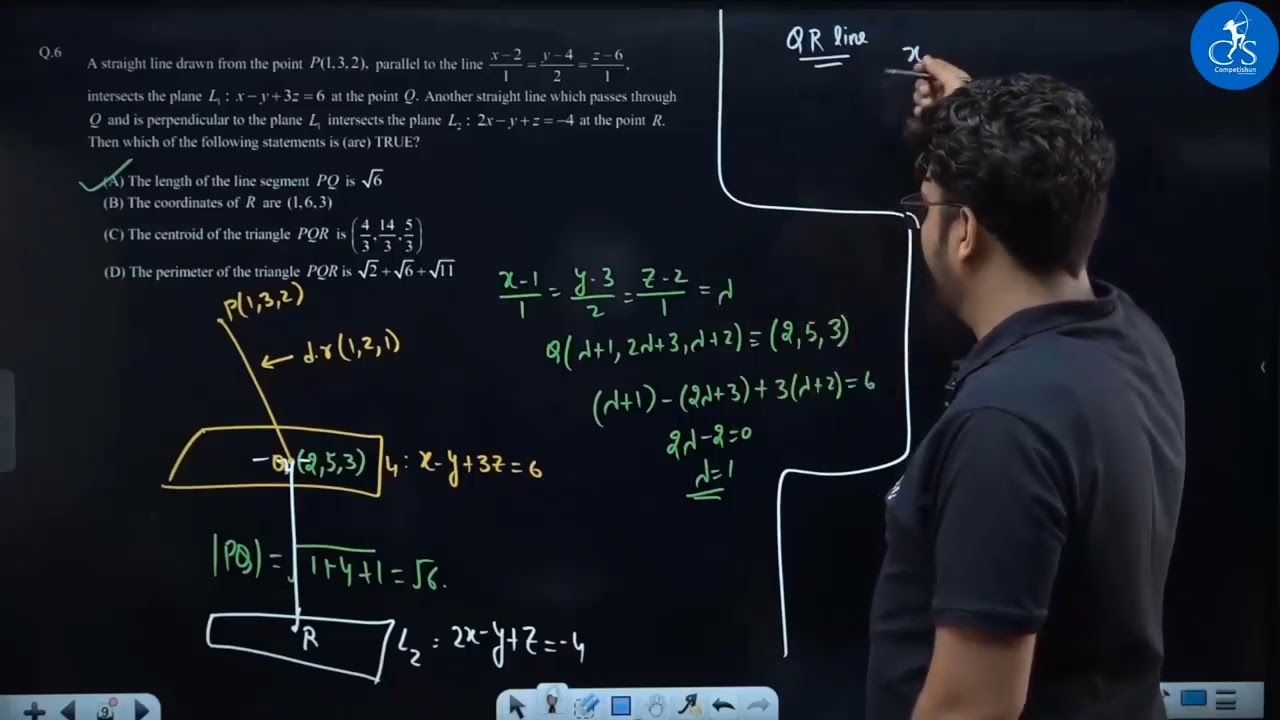 Q.6
A straight line drawn from the point P(1,3,2), parallel to the line (x−2)/1 = (y−4)/2 = (z−6)/1,
intersects the plane L₁ : x−y+3z=6 at the point Q. Another straight line which passes through
Q and is perpendicular to the plane L₁ intersects the plane L₂ : 2x−y+z=−4 at the point R.
Then which of the following statements is (are) TRUE?
(A) The length of the line segment PQ is √6
(B) The coordinates of R are (1,6,3)
(C) The centroid of the triangle PQR is (4/3, 14/3, 5/3)
(D) The perimeter of the triangle PQR is √2+√6+√11
P(1,3,2)
d.r(1,2,1)
(2,5,3)
L₁ : x-y+3z=6
|PQ| = √1+4+1 = √6.
R
L₂ : 2x-y+z=-4
(x-1)/1 = (y-3)/2 = (z-2)/1 = λ
Q(λ+1, 2λ+3, λ+2) = (2,5,3)
(λ+1) - (2λ+3) + 3(λ+2) = 6
2λ-2=0
λ=1
QR line
x
CS
Competishun
9